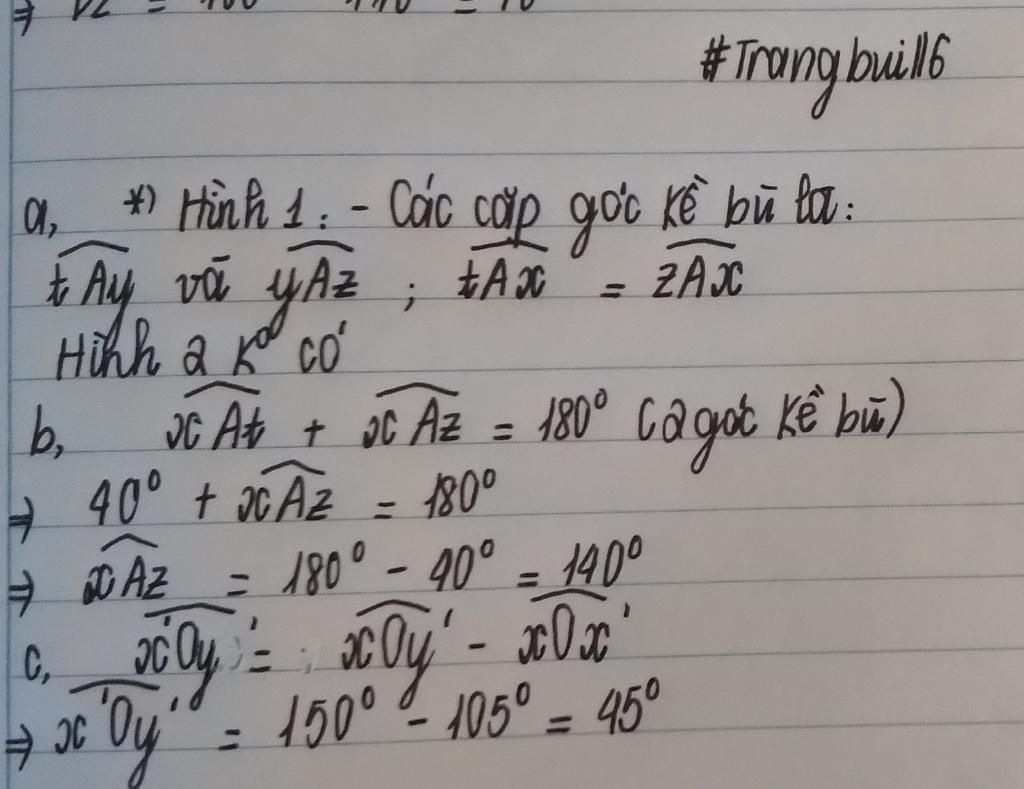 #Trangbui116
a, *) Hình 1: - Các cặp góc kề bù là:
tAy và yAz ; tAx = zAx
Hình 2 k⁰ có
b, xAt + xAz = 180⁰ (2 góc kề bù)
⇒ 40⁰ + xAz = 180⁰
⇒ xAz = 180⁰ - 40⁰ = 140⁰
c, x'Oy' = xOy' - xOx'
⇒ x'Oy' = 150⁰ - 105⁰ = 45⁰